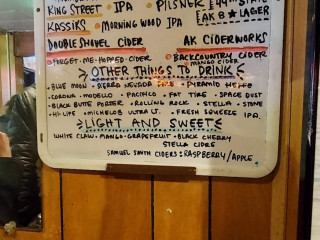 KING STREET IPA • PILSNER
KASSIKS • MORNING WOOD IPA AK 8★ LAGER
DOUBLE SHOVEL CIDER AK CIDERWORKS
FORGET-ME-HOPPED CIDER • BACKCOUNTRY CIDER
MANGO CIDER
OTHER THINGS TO DRINK
• BLUE MOON • SIERRA NEVADA PALE • PYRAMID HEFE
CORONA • MODELLO • PACIFICO • FAT TIRE • SPACE DUST
• BLACK BUTTE PORTER • ROLLING ROCK • STELLA • STONE
HI-LIFE • MICHELOB ULTRA LT. • FRESH SQUEEZE IPA.
LIGHT AND SWEET
WHITE CLAW • MANGO • GRAPEFRUIT • BLACK CHERRY
STELLA CIDRE
SAMUEL SMITH CIDERS: RASPBERRY/APPLE